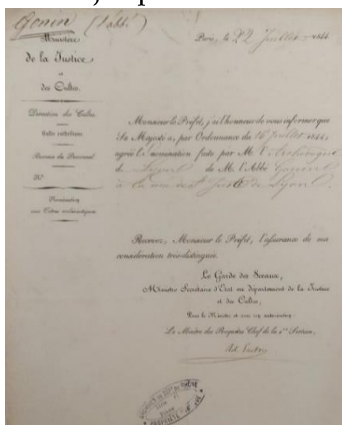 Genin (l'abbé)
Ministère
de la Justice
et
des Cultes.
Paris, le 22 Juillet 1844
Direction des Cultes
Culte catholique.
Bureau du Personnel
Nomination
aux Titres ecclésiastiques
Monsieur le Préfet, j'ai l'honneur de vous informer que
Sa Majesté a, par Ordonnance du 16 Juillet 1844,
agréé la nomination faite par Mr. l'Archevêque
de Lyon, de Mr. l'Abbé Genin
à la cure de St Just de Lyon.
Recevez, Monsieur le Préfet, l'assurance de ma
considération très-distinguée.
Le Garde des Sceaux,
Ministre Secrétaire d'État au département de la Justice
et des Cultes,
Pour le Ministre et par son autorisation:
Le Maître des Requêtes Chef de la 1ère Section,